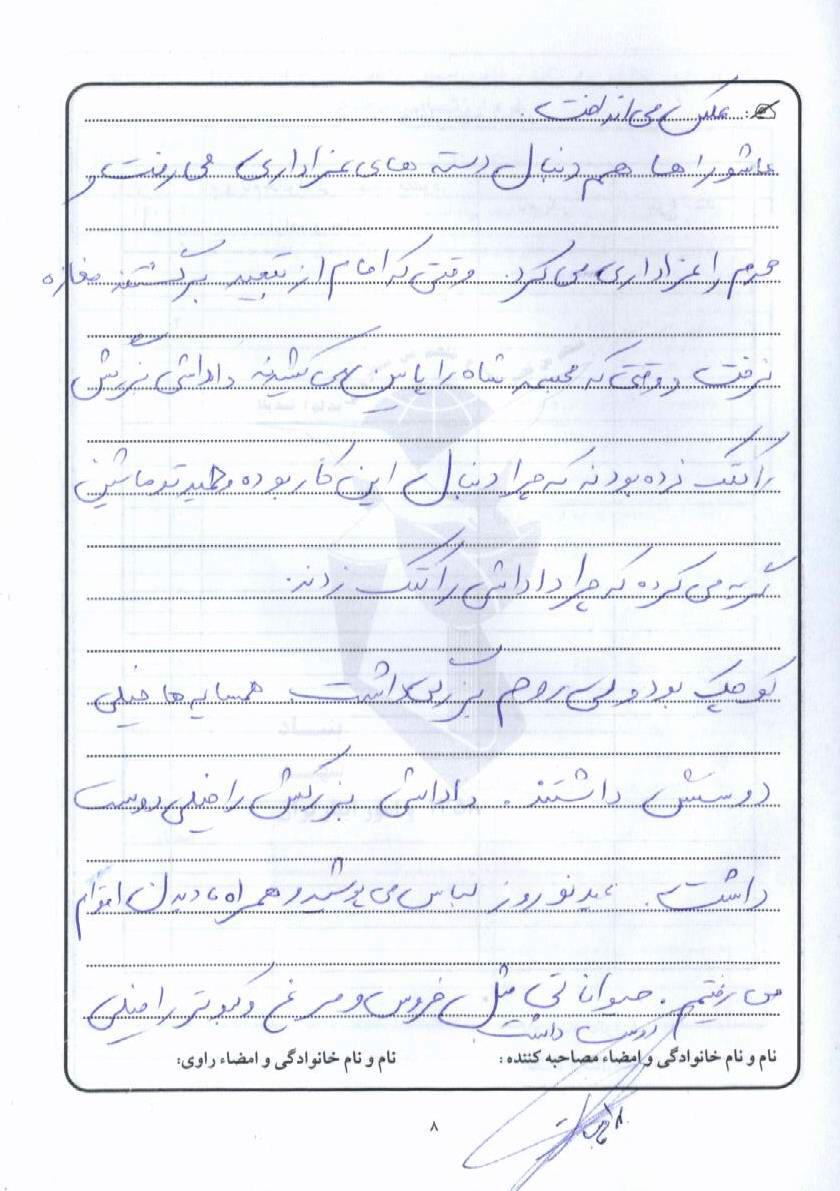 عکس می انداخت.
عاشورا ها هم دنبال دسته های عزاداری می رفت و
محرم را عزاداری می کرد. وقتی که امام از تبعید برگشتند مغازه
نرفت و وقتی که مجسمه شاه را پایین می کشیدند داداش بزرگش
را کتک زده بودند که چرا دنبال این کار بوده و حمید تو ماشین
گریه می کرده که چرا داداش را کتک زدند.
کوچک بود ولی روح بزرگی داشت. همسایه ها خیلی
دوستش داشتند. داداش بزرگش را خیلی دوست
داشت. عید نوروز لباس می پوشید و همراه ما دیدن اقوام
می رفتیم. حیواناتی مثل خروس و مرغ و کبوتر را خیلی
دوست داشت
نام و نام خانوادگی و امضاء مصاحبه کننده: نام و نام خانوادگی و امضاء راوی:
۸